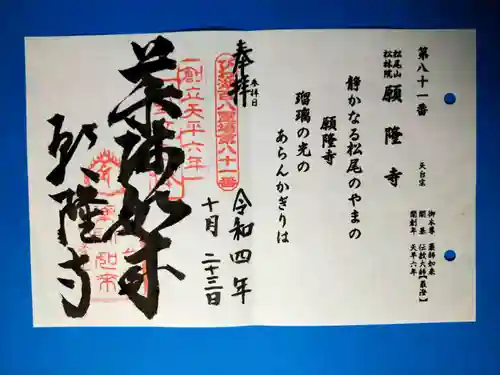 第八十一番
松尾山
松林院
願隆寺
天台宗
御本尊 薬師如来
開基 伝教大師【最澄】
開創年 天平六年
静かなる松尾のやまの
願隆寺
瑠璃の光の
あらんかぎりは
奉拝
参拝日
令和四年
十月二十三日
創立天平六年
薬師如来
願隆寺